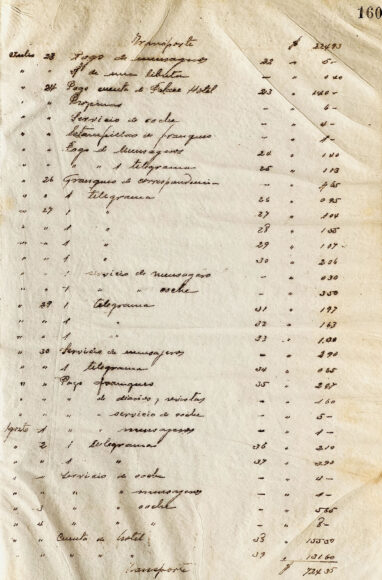 160
Transporte $ 224.93
Julio 23 Pago de mensajeros 22 " 5 -
" " 1 de una libreta - " 0 40
" 24 Pago cuenta de Palace Hotel 23 " 140 -
" " Propinas - " 6 -
" " Servicio de coche - " 4 -
" " Estampillas de franqueo - " 1 -
" " Pago de Mensajeros 24 " 1 40
" " " " 1 telegrama 25 " 1 13
" 26 Franqueo de correspondencia - "
" " 1 telegrama 26 " 0 95
" 27 1 " 27 " 1 04
" " 1 " 28 " 1 35
" " 1 " 29 " 1 17
" " 1 " 30 " 2 06
" " 1 servicio de mensajero - " 0 30
" " 1 " " coche - " 3 50
" 29 1 telegrama 31 " 1 97
" " 1 " 32 " 1 63
" " 1 " 33 " 1.00
" 30 Servicio de mensajeros - " 2 90
" " 1 telegrama 34 " 0 65
" " Pago franqueos 35 "
" " " de diarios y revistas - " 1 60
" " " servicio de coche - " 5 -
Agosto 1 " " mensajeros - " 1 -
" 2 1 Telegrama 36 " 2 10
" " 1 " 37 " 3 90
" " Servicio de coche - " 4 -
" " " " mensajero - " 1 -
" 3 " " coche - " 5 65
" 4 " " " - " 8 -
" " Cuenta de hotel 38 " 155 50
" " " " " 39 " 131.60
Transporte $ 724.35